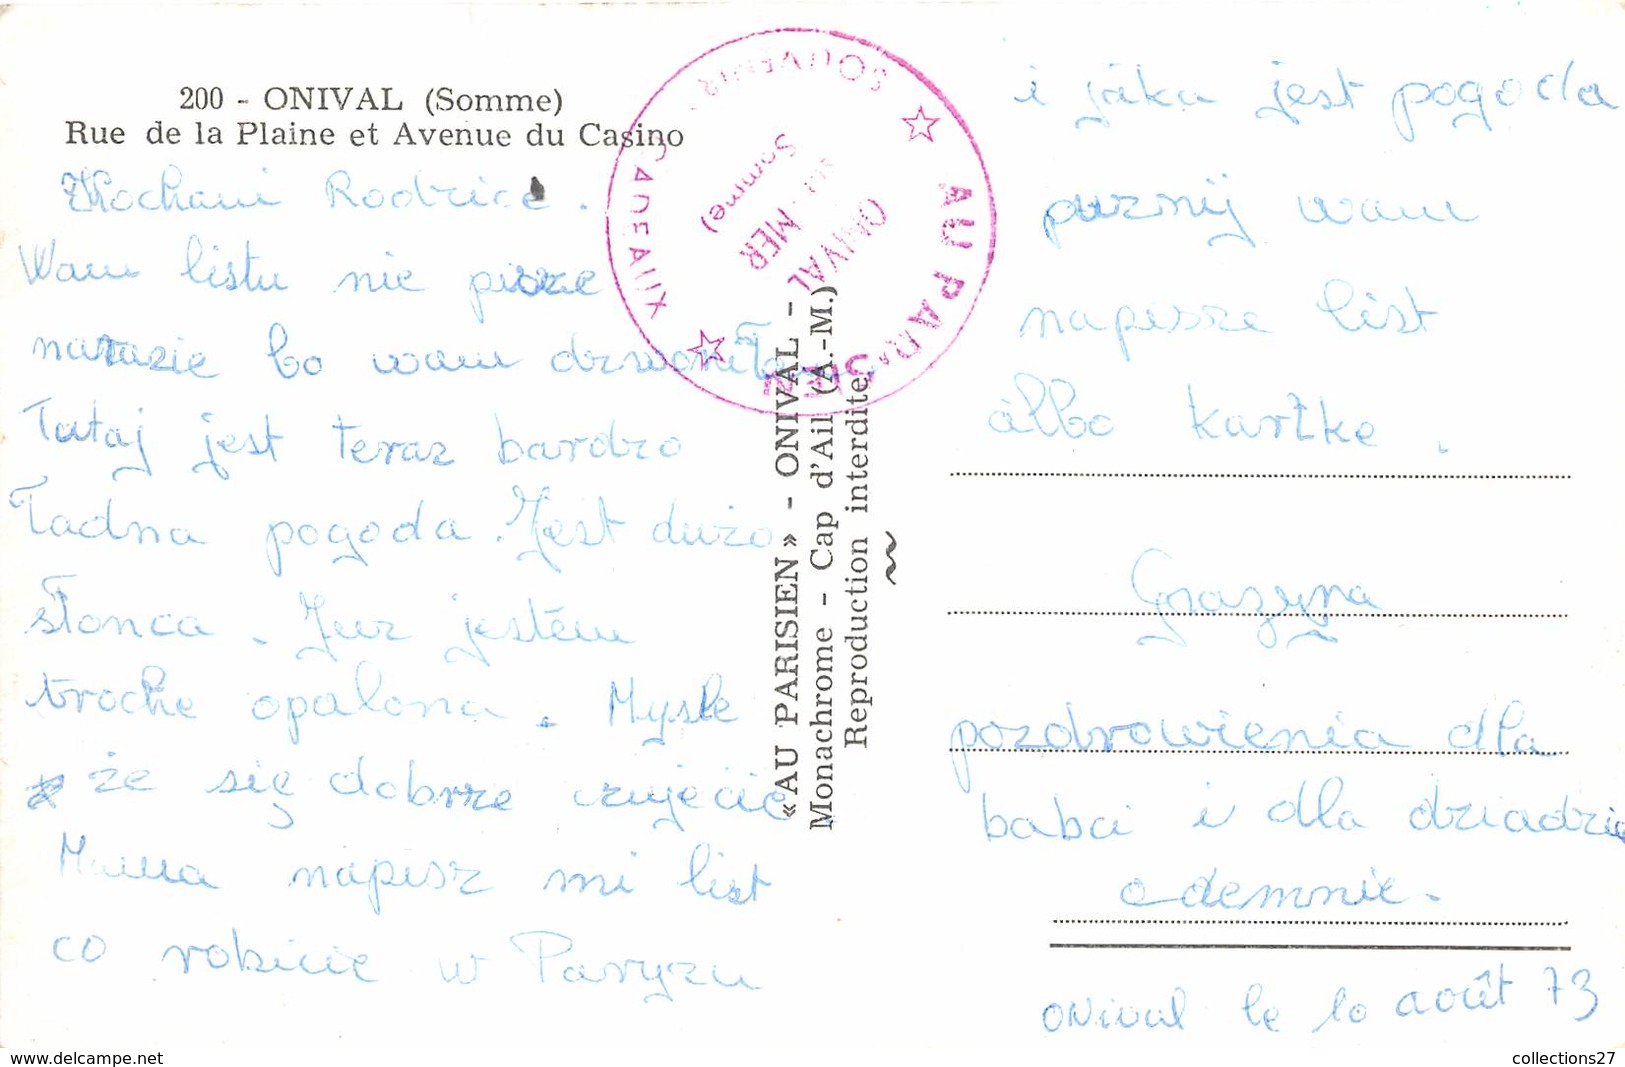 200 - ONIVAL (Somme)
Rue de la Plaine et Avenue du Casino
Kochani Rodzice.
Wam listu nie pisze
narazie bo wam dzwoniłam
Tutaj jest teraz bardzo
Ładna pogoda. Jest dużo
słonca. Juz jestem
troche opalona. Mysle
że się dobrze czujecie
Mama napisz mi list
co robicie w Paryzu
SOUVENIRS - CADEAUX
AU PARISIEN
ONIVAL
SUR MER
(Somme)
«AU PARISIEN» - ONIVAL -
Monachrome - Cap d'Ail (A.-M.)
Reproduction interdite
i jáka jest pogoda
puznij wam
napisze list
álbo kartke.
Grazyna
pozdrowienia dla
babci i dla dziadzia
odemnie.
ONival le 10 août 73
collections27